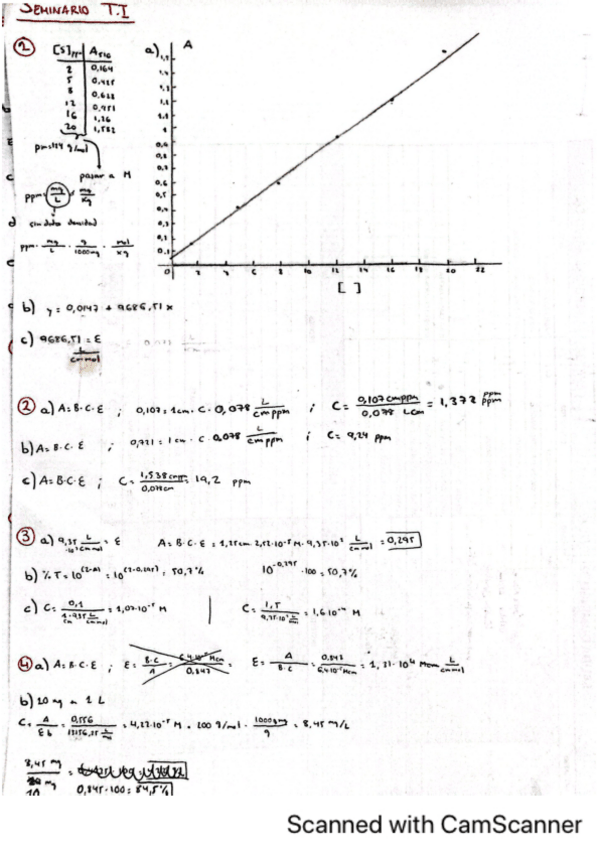 SEMINARIO T.I
[S]ppm A510
2 0,164
5 0,425
8 0,628
12 0,951
16 1,26
20 1,582
pm=124 g/mol
pasar a M
ppm mg/L mg/Kg
sin datos densidad
ppm · mg/L · g/1000mg · mol/xg
a) A
[ ]
b) y = 0,0147 + 9686,51x
c) 9686,51 = ε L/cm mol
② a) A=B·C·ε ; 0,107 = 1cm · C · 0,078 L/cm ppm ; C = 0,107 cm ppm/0,078 L cm = 1,372 ppm
b) A=B·C·ε ; 0,721 = 1cm · C · 0,078 L/cm ppm ; C = 9,24 ppm
c) A=B·C·ε ; C = 1,538 cm ppm/0,078 cm = 19,2 ppm
③ a) 9,35 L/cm mol = ε A = B·C·ε = 1,25cm · 2,52·10⁻⁵ M · 9,35·10³ L/cm mol = 0,295
b) % T = 10^(2-A) = 10^(2-0,295) = 50,7% 10^-0,295 · 100 = 50,7%
c) C = 0,1 = 1,07·10⁻⁵ M C = 1,5 = 1,6·10⁻⁴ M
④ a) A=B·C·ε ; ε = B·C/A = 6,4·10⁻⁵ Mcm/0,847 = ε = A/B·C = 0,847/6,4·10⁻⁵ Mcm = 1,31·10⁴ L/cm mol
b) 10 mg en 1 L
C = A/εb = 0,556 = 4,23·10⁻⁵ M · 200 g/mol · 1000mg/g = 8,45 mg/L
8,45 mg
0,845·100 = 84,5%
Scanned with CamScanner